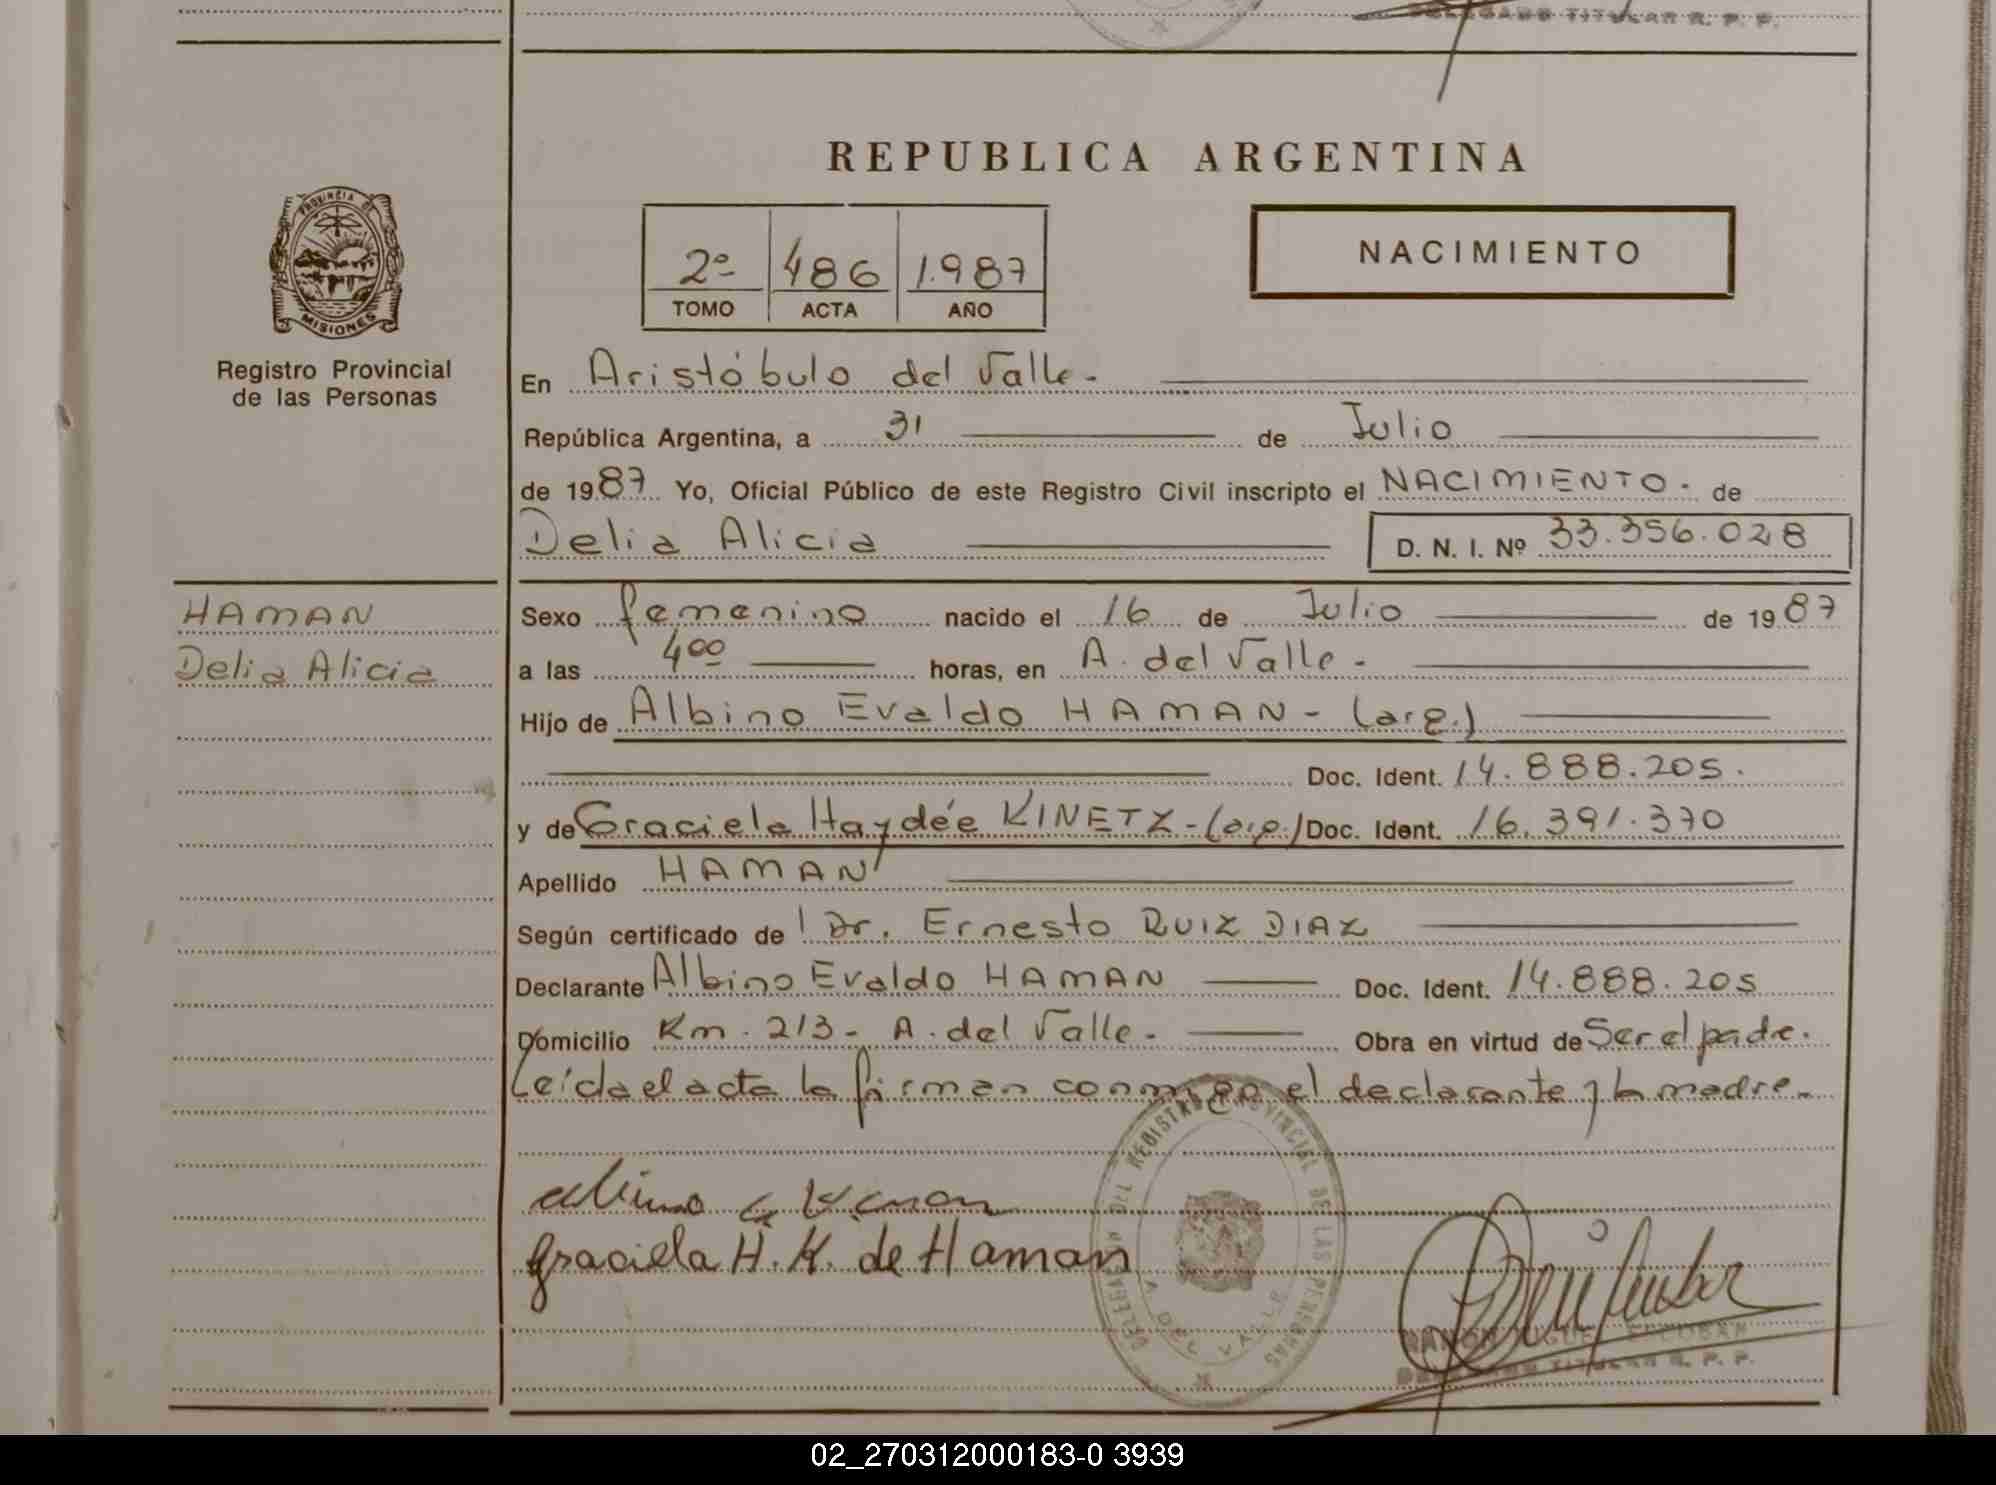 DELEGADO TITULAR R. P. P.
REPUBLICA ARGENTINA
PROVINCIA DE
MISIONES
Registro Provincial
de las Personas
2º 486 1.987
TOMO ACTA AÑO
NACIMIENTO
En Aristóbulo del Valle.-
República Argentina, a 31 de Julio
de 1987 Yo, Oficial Público de este Registro Civil inscripto el NACIMIENTO.- de
Delia Alicia D. N. I. Nº 33.356.028
HAMAN
Delia Alicia
Sexo femenino nacido el 16 de Julio de 1987
a las 4⁰⁰ horas, en A. del Valle.-
Hijo de Albino Evaldo HAMAN - (arg.)
Doc. Ident. 14.888.205.
y de Graciela Haydée KINETZ - (arg.) Doc. Ident. 16.391.370
Apellido HAMAN
Según certificado de Dr. Ernesto RUIZ DIAZ
Declarante Albino Evaldo HAMAN Doc. Ident. 14.888.205
Domicilio Km. 213 - A. del Valle.- Obra en virtud de Ser el padre.
Leída el acta la firman conmigo el declarante y la madre.-
DELEGACIA DEL REGISTRO PROVINCIAL DE LAS PERSONAS
A. DEL VALLE
Albino E Haman
Graciela H. K. de Haman
RAMON MIGUEL ESCOBAR
DELEGADO TITULAR R. P. P.
02_270312000183-0 3939